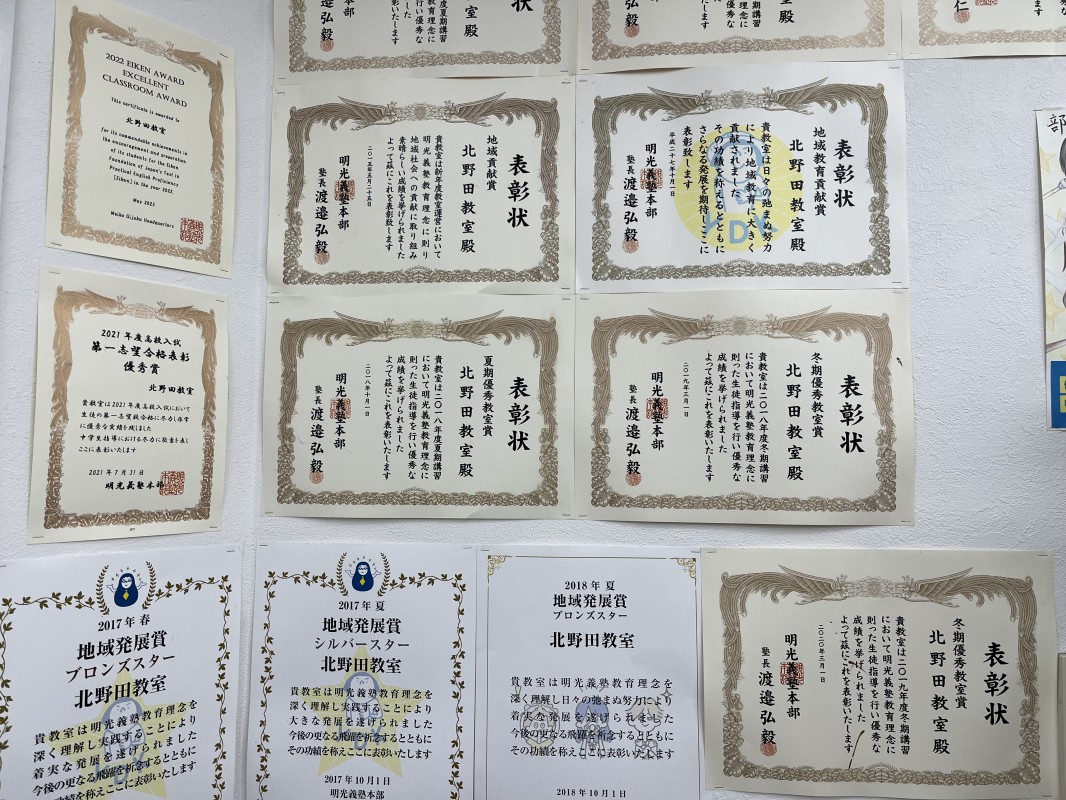 状
殿
年度夏期講習
育理念に
行い優秀な
ました
彰いたします
本部
邉弘毅
状
殿
講習
育理念に
行い優秀な
ました
いたします
本部
弘毅
仁
2022 EIKEN AWARD
EXCELLENT
CLASSROOM AWARD
This certificate is awarded to
北野田教室
for its commendable achievements in
the encouragement and preparation
of its students for the Eiken
Foundation of Japan's Test in
Practical English Proficiency
(Eiken) in the year 2022
May 2023
Meiko Gijuku Headquarters
表彰状
地域貢献賞
北野田教室殿
貴教室は新年度教室運営において
明光義塾教育理念に則り
地域社会への貢献に取り組み
素晴らしい成績を挙げられました
よって茲にこれを表彰致します
二〇一五年五月二十五日
明光義塾本部
塾長 渡邉弘毅
表彰状
地域教育貢献賞
北野田教室殿
貴教室は日々の弛まぬ努力
により地域教育に大きく
貢献されました
その功績を称えるとともに
さらなる発展を期待しここに
表彰致します
平成二十七年十月一日
明光義塾本部
塾長 渡邉弘毅
YDK
2021年度高校入試
第一志望合格表彰
優秀賞
北野田教室
貴教室は2021年度高校入試において
生徒の第一志望校合格に尽力し非常
に優秀な実績を残しました
中学生指導における尽力に敬意を表し
ここに表彰いたします
2021年7月31日
明光義塾本部
表彰状
夏期優秀教室賞
北野田教室殿
貴教室は二〇一八年度夏期講習
において明光義塾教育理念に
則った生徒指導を行い優秀な
成績を挙げられました
よって茲にこれを表彰いたします
二〇一八年十月一日
明光義塾本部
塾長 渡邉弘毅
表彰状
冬期優秀教室賞
北野田教室殿
貴教室は二〇一八年度冬期講習
において明光義塾教育理念に
則った生徒指導を行い優秀な
成績を挙げられました
よって茲にこれを表彰いたします
二〇一九年三月一日
明光義塾本部
塾長 渡邉弘毅
2017年 春
地域発展賞
ブロンズスター
北野田教室
貴教室は明光義塾教育理念を
深く理解し実践することにより
着実な発展を遂げられました
今後の更なる飛躍を祈念するとともに
その功績を称えここに表彰いたします
2017年 夏
地域発展賞
シルバースター
北野田教室
貴教室は明光義塾教育理念を
深く理解し実践することにより
大きな発展を遂げられました
今後の更なる飛躍を祈念するとともに
その功績を称えここに表彰いたします
2017年10月1日
明光義塾本部
2018年 夏
地域発展賞
ブロンズスター
北野田教室
貴教室は明光義塾教育理念を
深く理解し日々の弛まぬ努力により
着実な発展を遂げられました
今後の更なる飛躍を祈念するとともに
その功績を称えここに表彰いたします
2018年10月1日
表彰状
冬期優秀教室賞
北野田教室殿
貴教室は二〇一九年度冬期講習
において明光義塾教育理念に
則った生徒指導を行い優秀な
成績を挙げられました
よって茲にこれを表彰いたします
二〇二〇年三月一日
明光義塾本部
塾長 渡邉弘毅
部